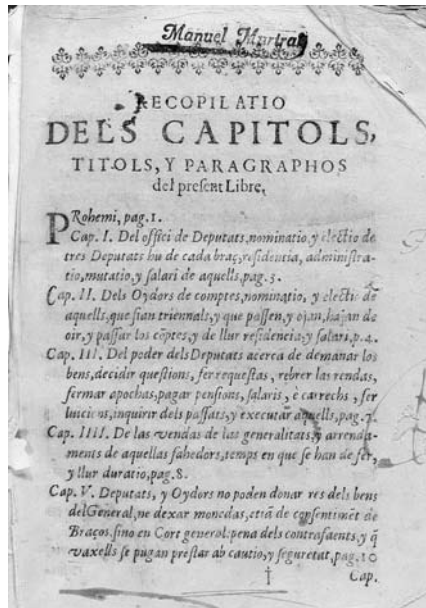 Manuel Murtra
RECOPILATIO
DELS CAPITOLS,
TITOLS, Y PARAGRAPHOS
del preſent Libre,
PRohemi, pag. 1.
Cap. I. Del offici de Deputats, nominatio, y electio de
tres Deputats hu de cada braç, reſidentia, adminiſtra-
tio, mutatio, y ſalari de aquells, pag. 3.
Cap. II. Dels Oydors de comptes, nominatio, y electio de
aquells, que ſian triennals, y que paſſen, y ojan, hajan de
oir, y paſſar los cōptes, y de llur reſidencia, y ſalari, p. 4.
Cap. III. Del poder dels Deputats acerca de demanar los
bens, decidir queſtions, fer requeſtas, rebrer las rendas,
fermar apochas, pagar penſions, ſalaris, e carrechs, fer
iuicions, inquirir dels paſſats, y executar aquells, pag. 7.
Cap. IIII. De las vendas de las generalitats, y arrenda-
ments de aquellas fahedors, temps en que ſe han de fer,
y llur duratio, pag. 8.
Cap. V. Deputats, y Oydors no poden donar res dels bens
del General, ne dexar monedas, etiā de conſentimēt de
Braços, ſino en Cort general: pena dels contrafaents, y q̄
vaxells ſe pugan preſtar ab cautio, y ſeguretat, pag. 10
† Cap.